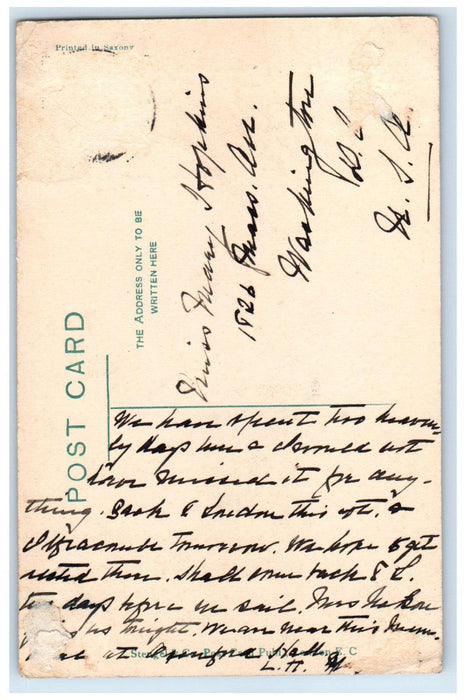 Printed in Saxony
POST CARD
THE ADDRESS ONLY TO BE
WRITTEN HERE
Miss Mary Hopkins
1826 Mass. Ave.
Washington
D. C.
U. S. A.
We have spent two heaven-
ly days here & I would not
have missed it for any-
thing. Back to London this aft. &
Ilfracombe tomorrow. We hope to get
rested there. Shall come back to L.
two days before we sail. Mrs
us tonight. We are near this
at Hall
L. H. M.
E. C